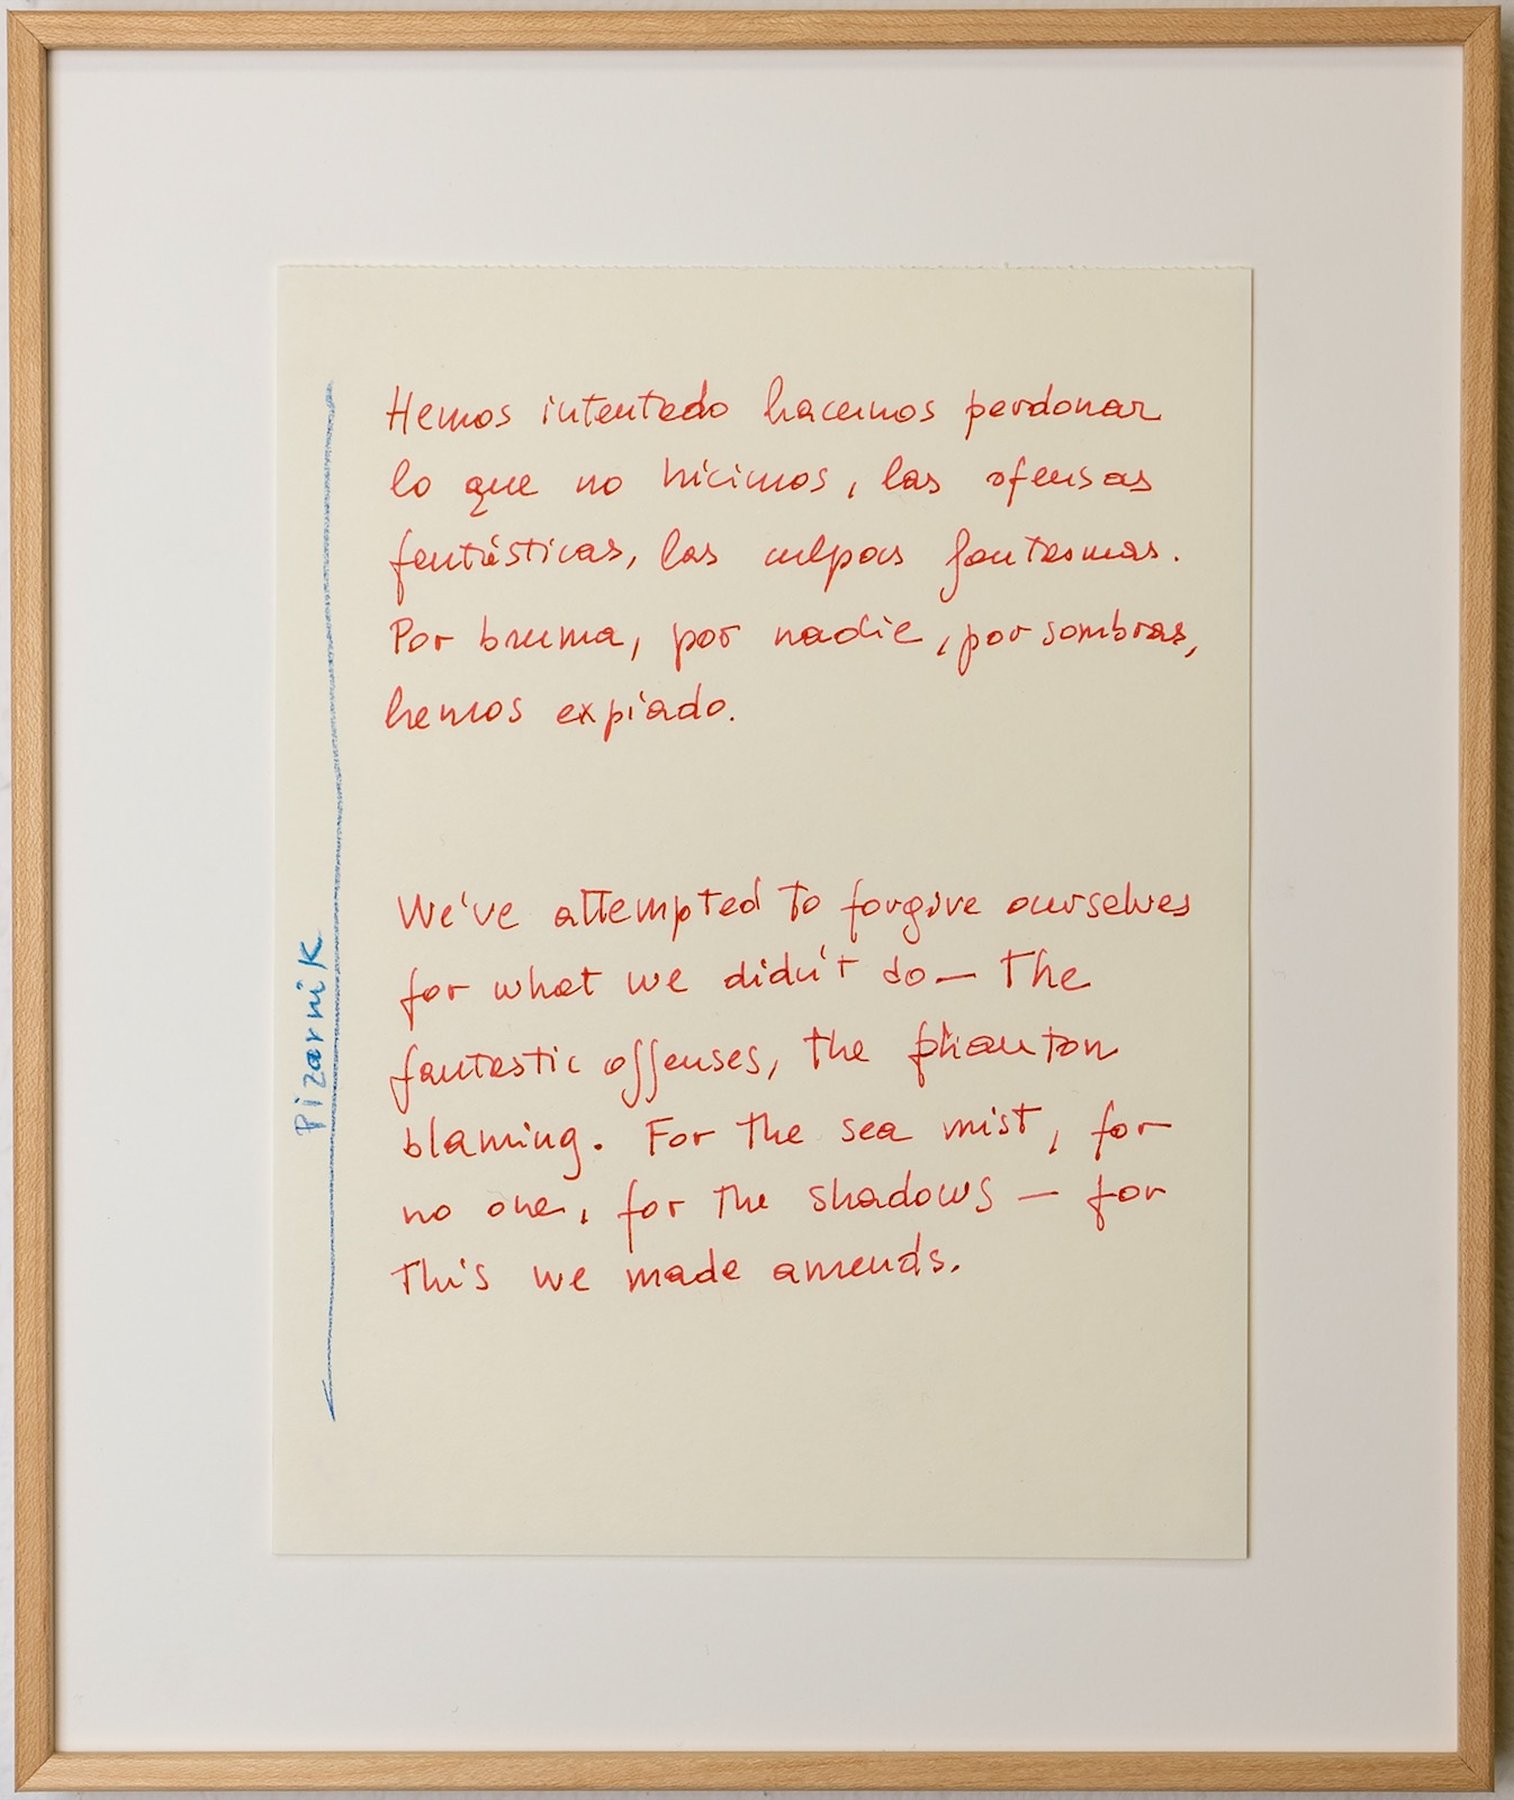 Hemos intentado hacernos perdonar
lo que no hicimos, las ofensas
fantásticas, las culpas fantasmas.
Por bruma, por nadie, por sombras,
hemos expiado.
We've attempted to forgive ourselves
for what we didn't do — the
fantastic offenses, the phantom
blaming. For the sea mist, for
no one, for the shadows — for
this we made amends.
Pizarnik